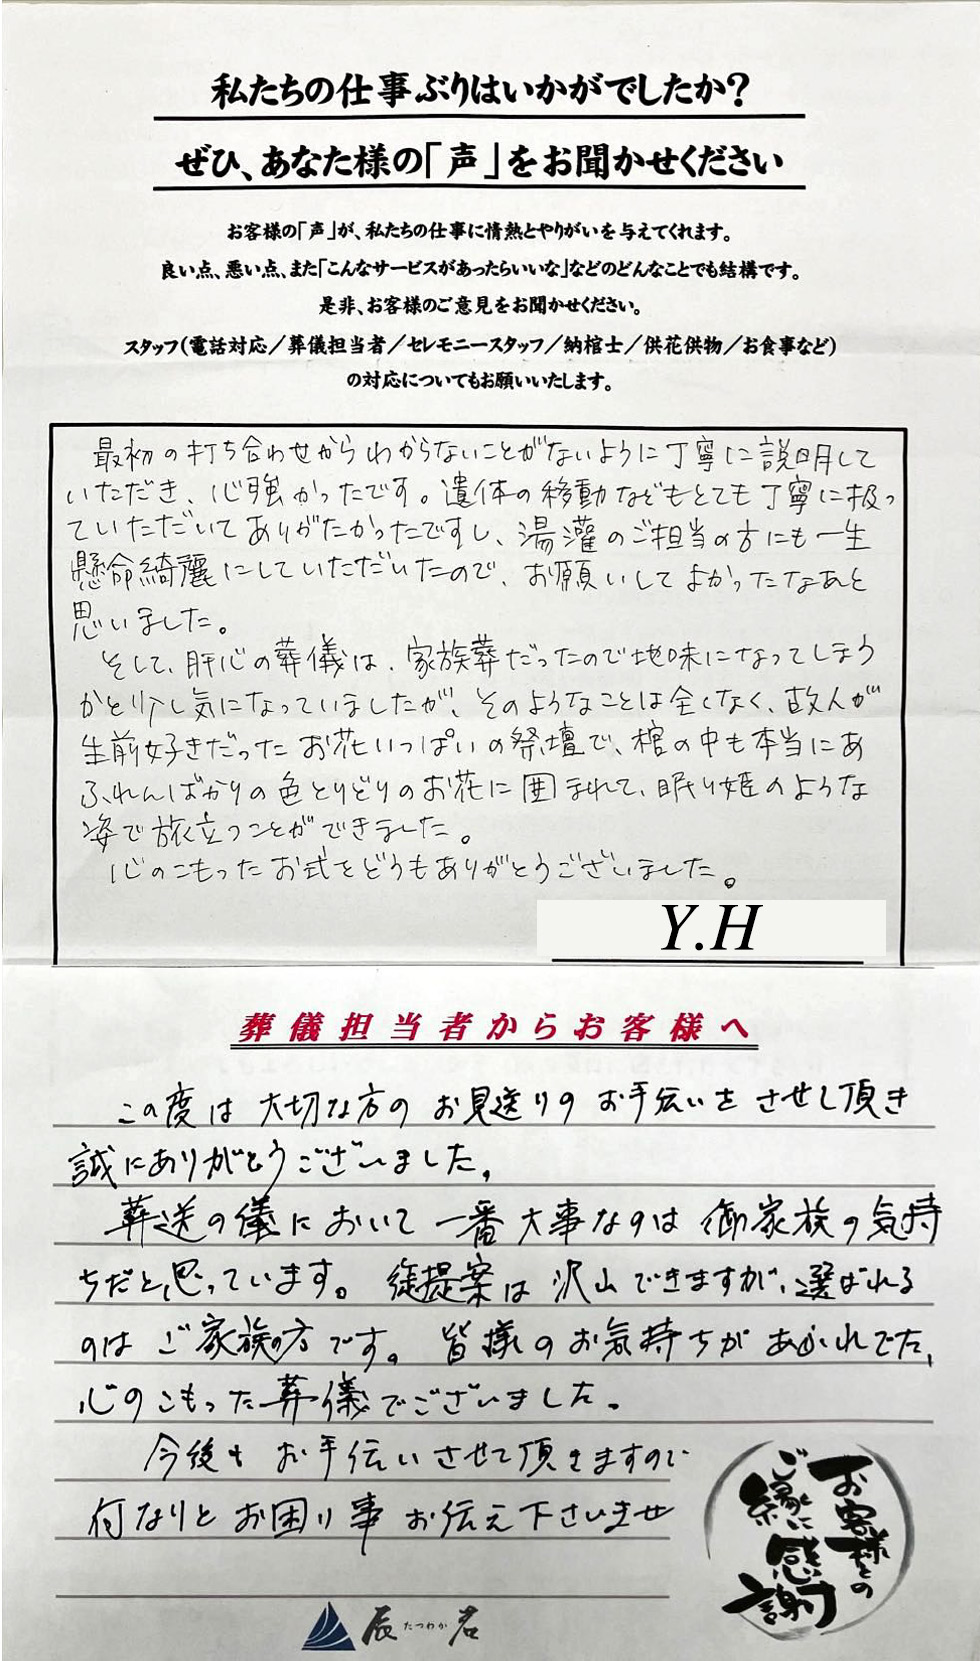 私たちの仕事ぶりはいかがでしたか？
ぜひ、あなた様の「声」をお聞かせください
お客様の「声」が、私たちの仕事に情熱とやりがいを与えてくれます。
良い点、悪い点、また「こんなサービスがあったらいいな」などのどんなことでも結構です。
是非、お客様のご意見をお聞かせください。
スタッフ（電話対応／葬儀担当者／セレモニースタッフ／納棺士／供花供物／お食事など）
の対応についてもお願いいたします。
最初の打ち合わせからわからないことがないように丁寧に説明して
いただき、心強かったです。遺体の移動などもとても丁寧に扱っ
ていただいてありがたかったですし、湯灌のご担当の方にも一生
懸命綺麗にしていただいたので、お願いしてよかったなあと
思いました。
そして、肝心の葬儀は、家族葬だったので地味になってしまう
かと少し気になっていましたが、そのようなことは全くなく、故人が
生前好きだったお花いっぱいの祭壇で、棺の中も本当にあ
ふれんばかりの色とりどりのお花に囲まれて、眠り姫のような
姿で旅立つことができました。
心のこもったお式をどうもありがとうございました。
Y.H
葬儀担当者からお客様へ
この度は大切な方のお見送りのお手伝いをさせて頂き
誠にありがとうございました。
葬送の儀において一番大事なのは御家族の気持
ちだと思っています。提案は沢山できますが、選ばれる
のはご家族の方です。皆様のお気持ちがあふれでた、
心のこもった葬儀でございました。
今後もお手伝いさせて頂きますので
何なりとお困り事お伝え下さいませ
お客様との
ご縁に
感謝
辰たつわか若